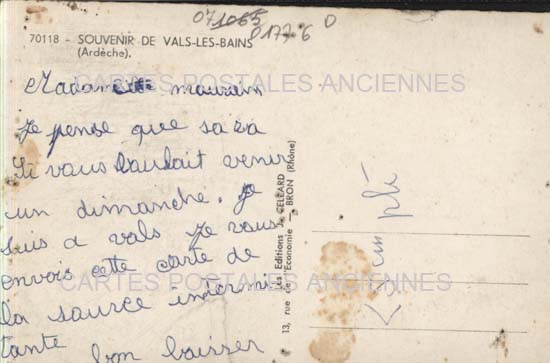 071065
D1776 D
70118 - SOUVENIR DE VALS-LES-BAINS
(Ardèche).
CARTES POSTALES ANCIENNES
Madame
Je pense que sa va
Si vous voulait venir
un dimanche. Je
suis a vals Je vous
envois cette carte de
la source intermi
tante
bon baisser
Les Editions J. CELLARD
13, rue de l'Economie — BRON (Rhône)
CARTES POSTALES ANCIENNES